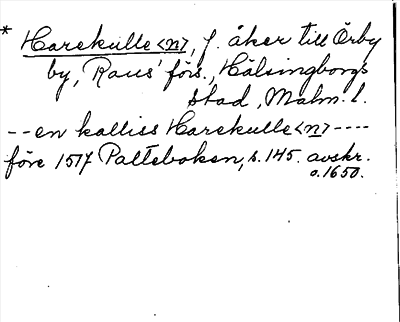 * Harekulle <n>, f. åker till Örby
by, Raus' förs., Hälsingborgs
stad, Malm. l.
-- en kalliss Harekulle <n> ----
före 1517 Palteboken, s. 145. avskr.
o. 1650.